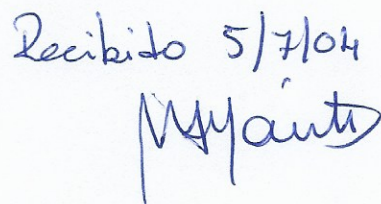 Recibido 5/7/04